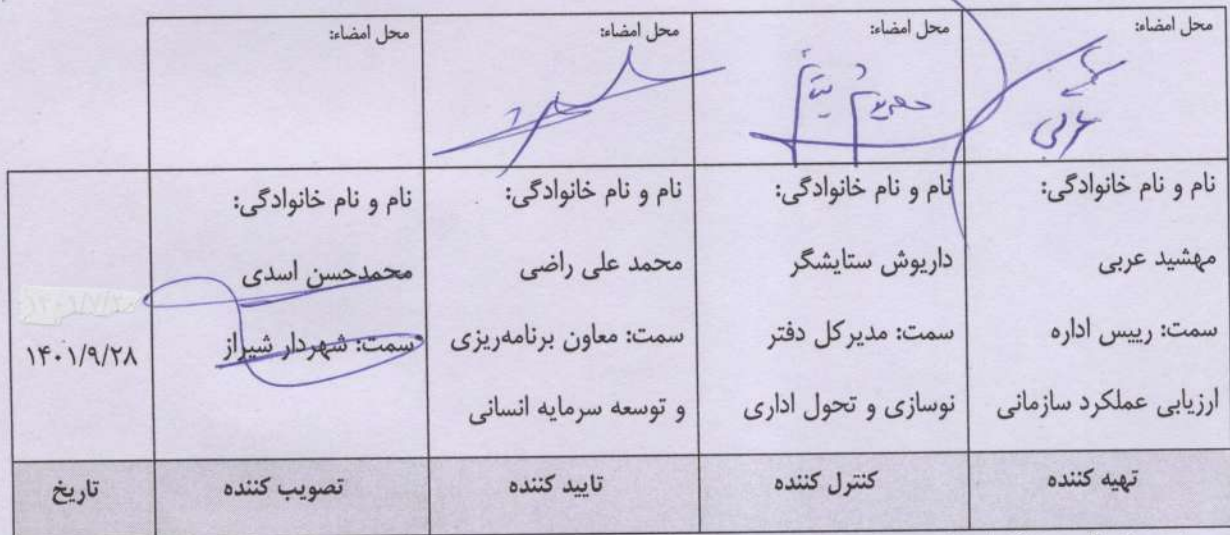 محل امضاء:
محل امضاء:
محل امضاء:
محل امضاء:
عربی
نام و نام خانوادگی:
مهشید عربی
سمت: رییس اداره
ارزیابی عملکرد سازمانی
نام و نام خانوادگی:
داریوش ستایشگر
سمت: مدیرکل دفتر
نوسازی و تحول اداری
نام و نام خانوادگی:
محمد علی راضی
سمت: معاون برنامه‌ریزی
و توسعه سرمایه انسانی
نام و نام خانوادگی:
محمدحسن اسدی
سمت: شهردار شیراز
۱۴۰۱/۹/۲۸
تهیه کننده
کنترل کننده
تایید کننده
تصویب کننده
تاریخ